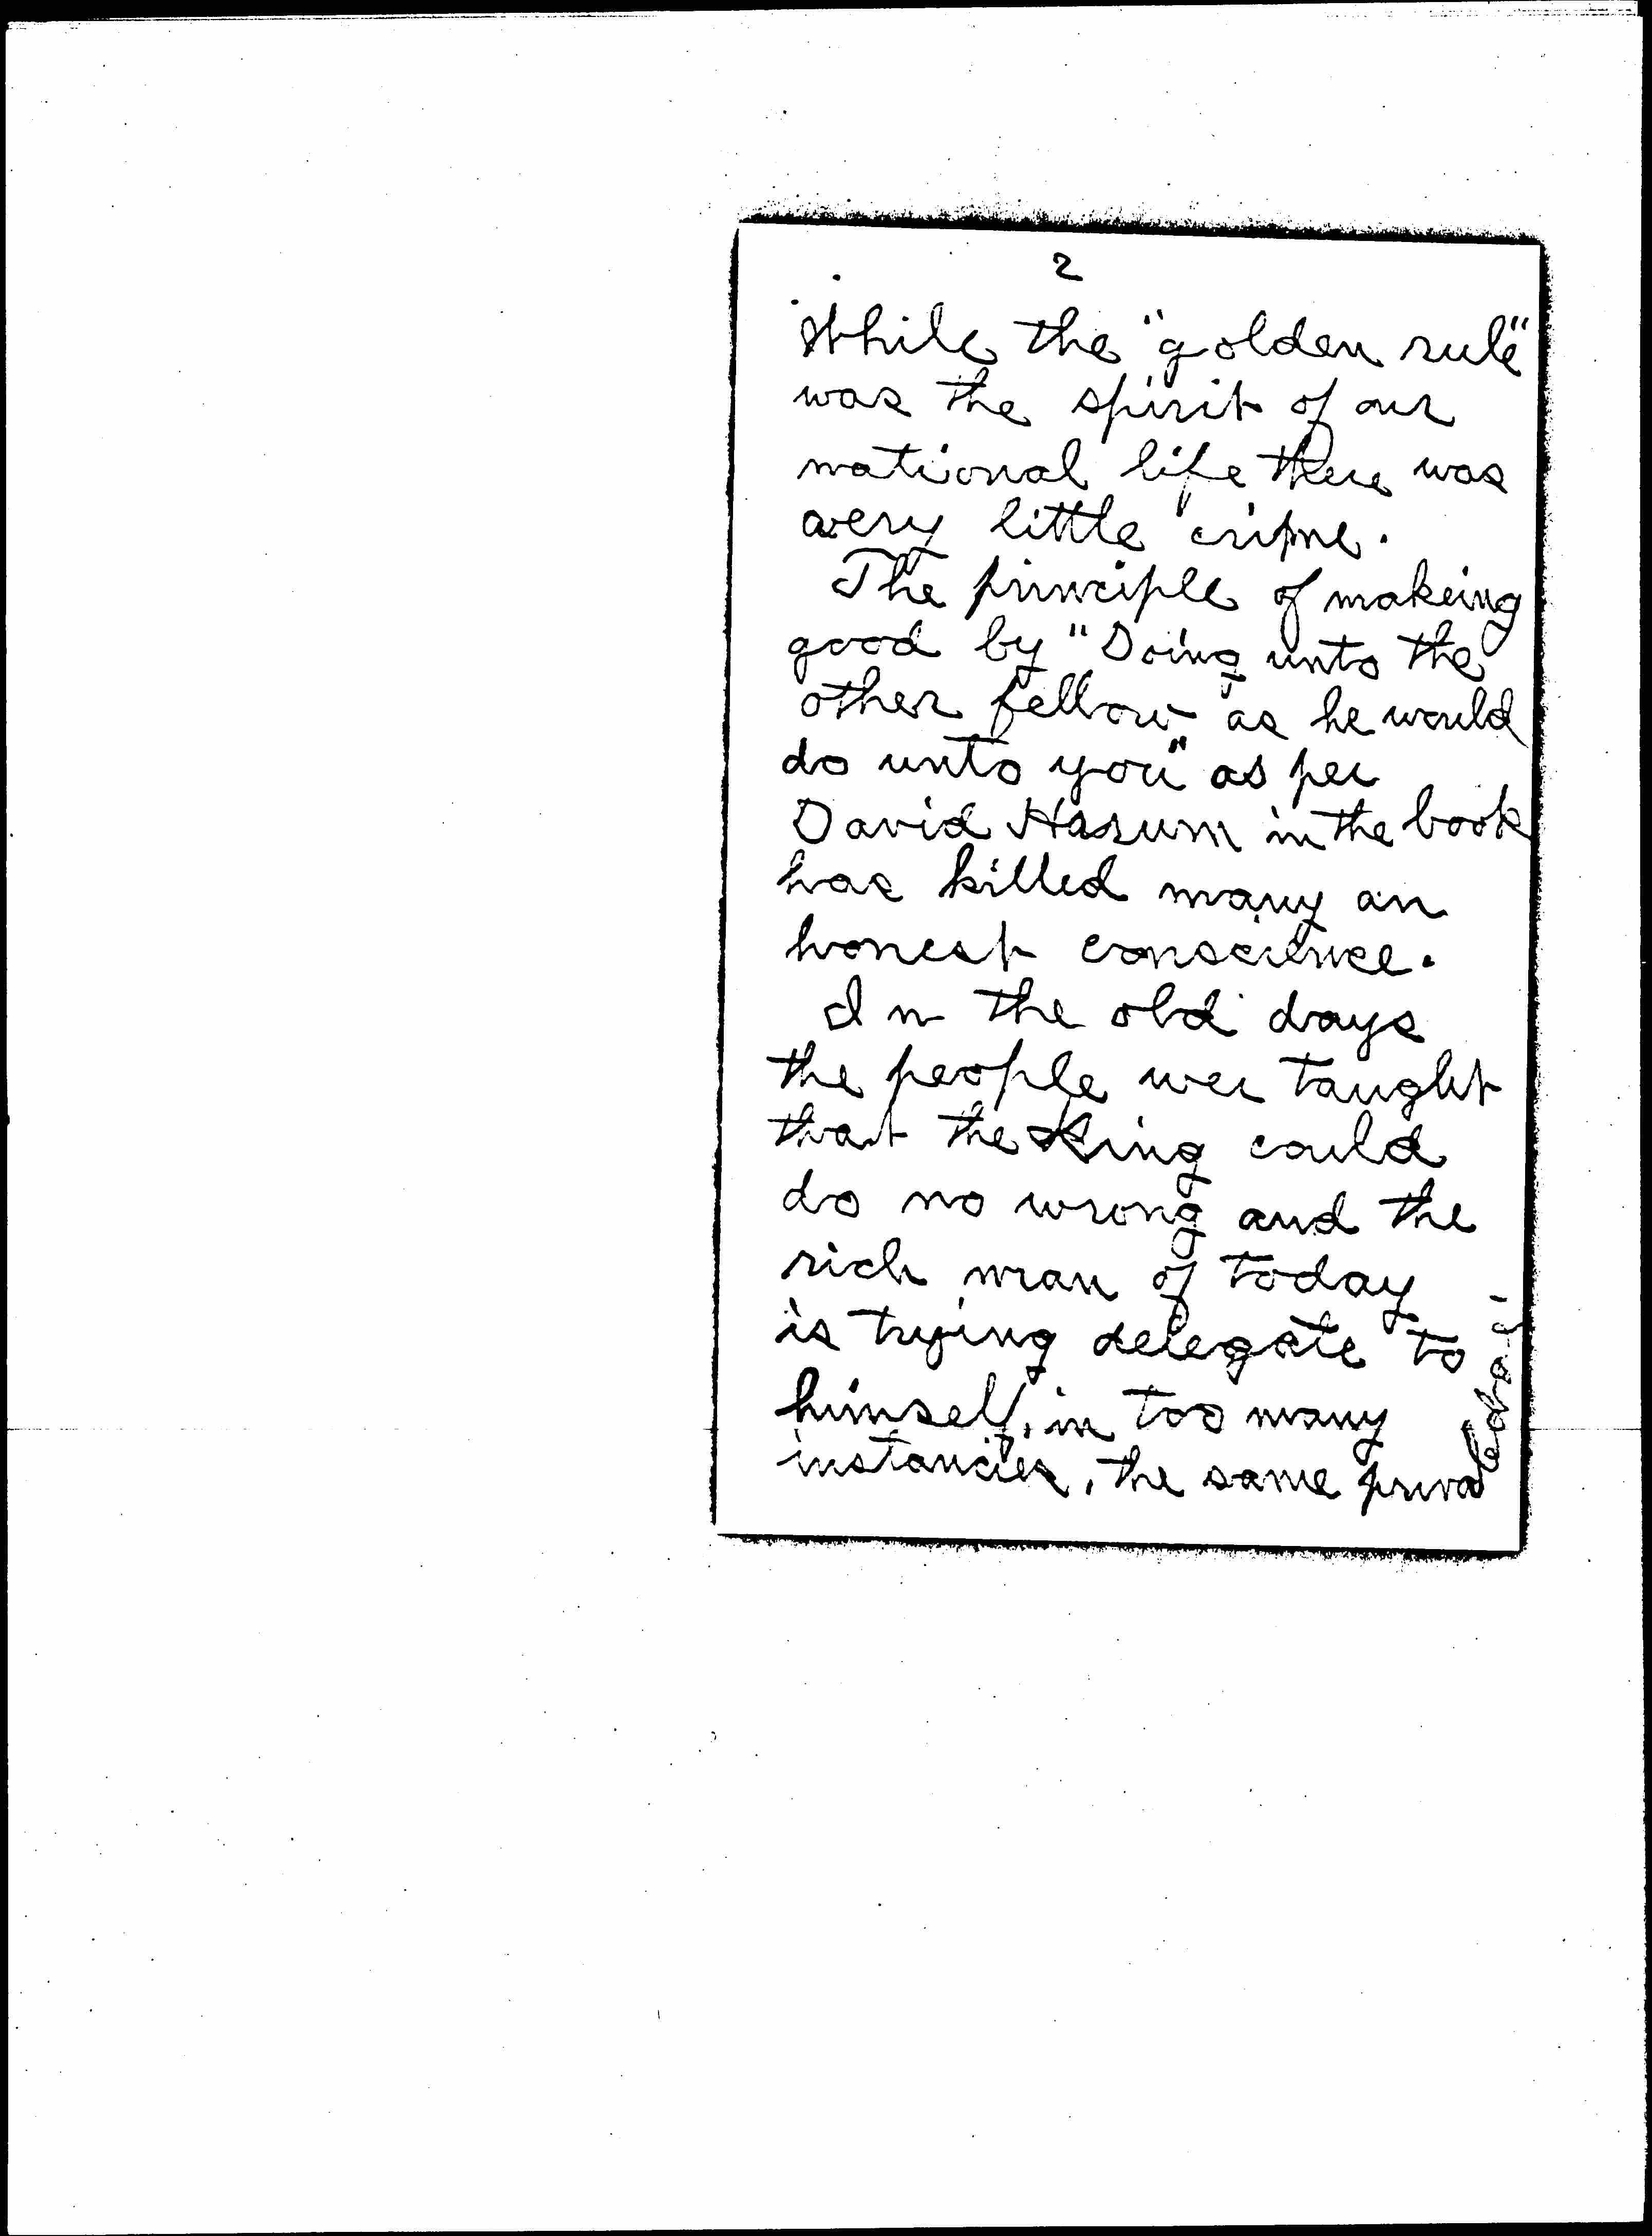 2
While the "golden rule"
was the spirit of our
national life there was
avery little crime.
The principle of makeing
good by "Doing unto the
other fellow as he would
do unto you" as per
David Harum in the book
has killed many an
honest conscience.
In the old days
the people wer taught
that the King could
do no wrong and the
rich man of today
is trying delegate to
himself, in too many
instancies, the same